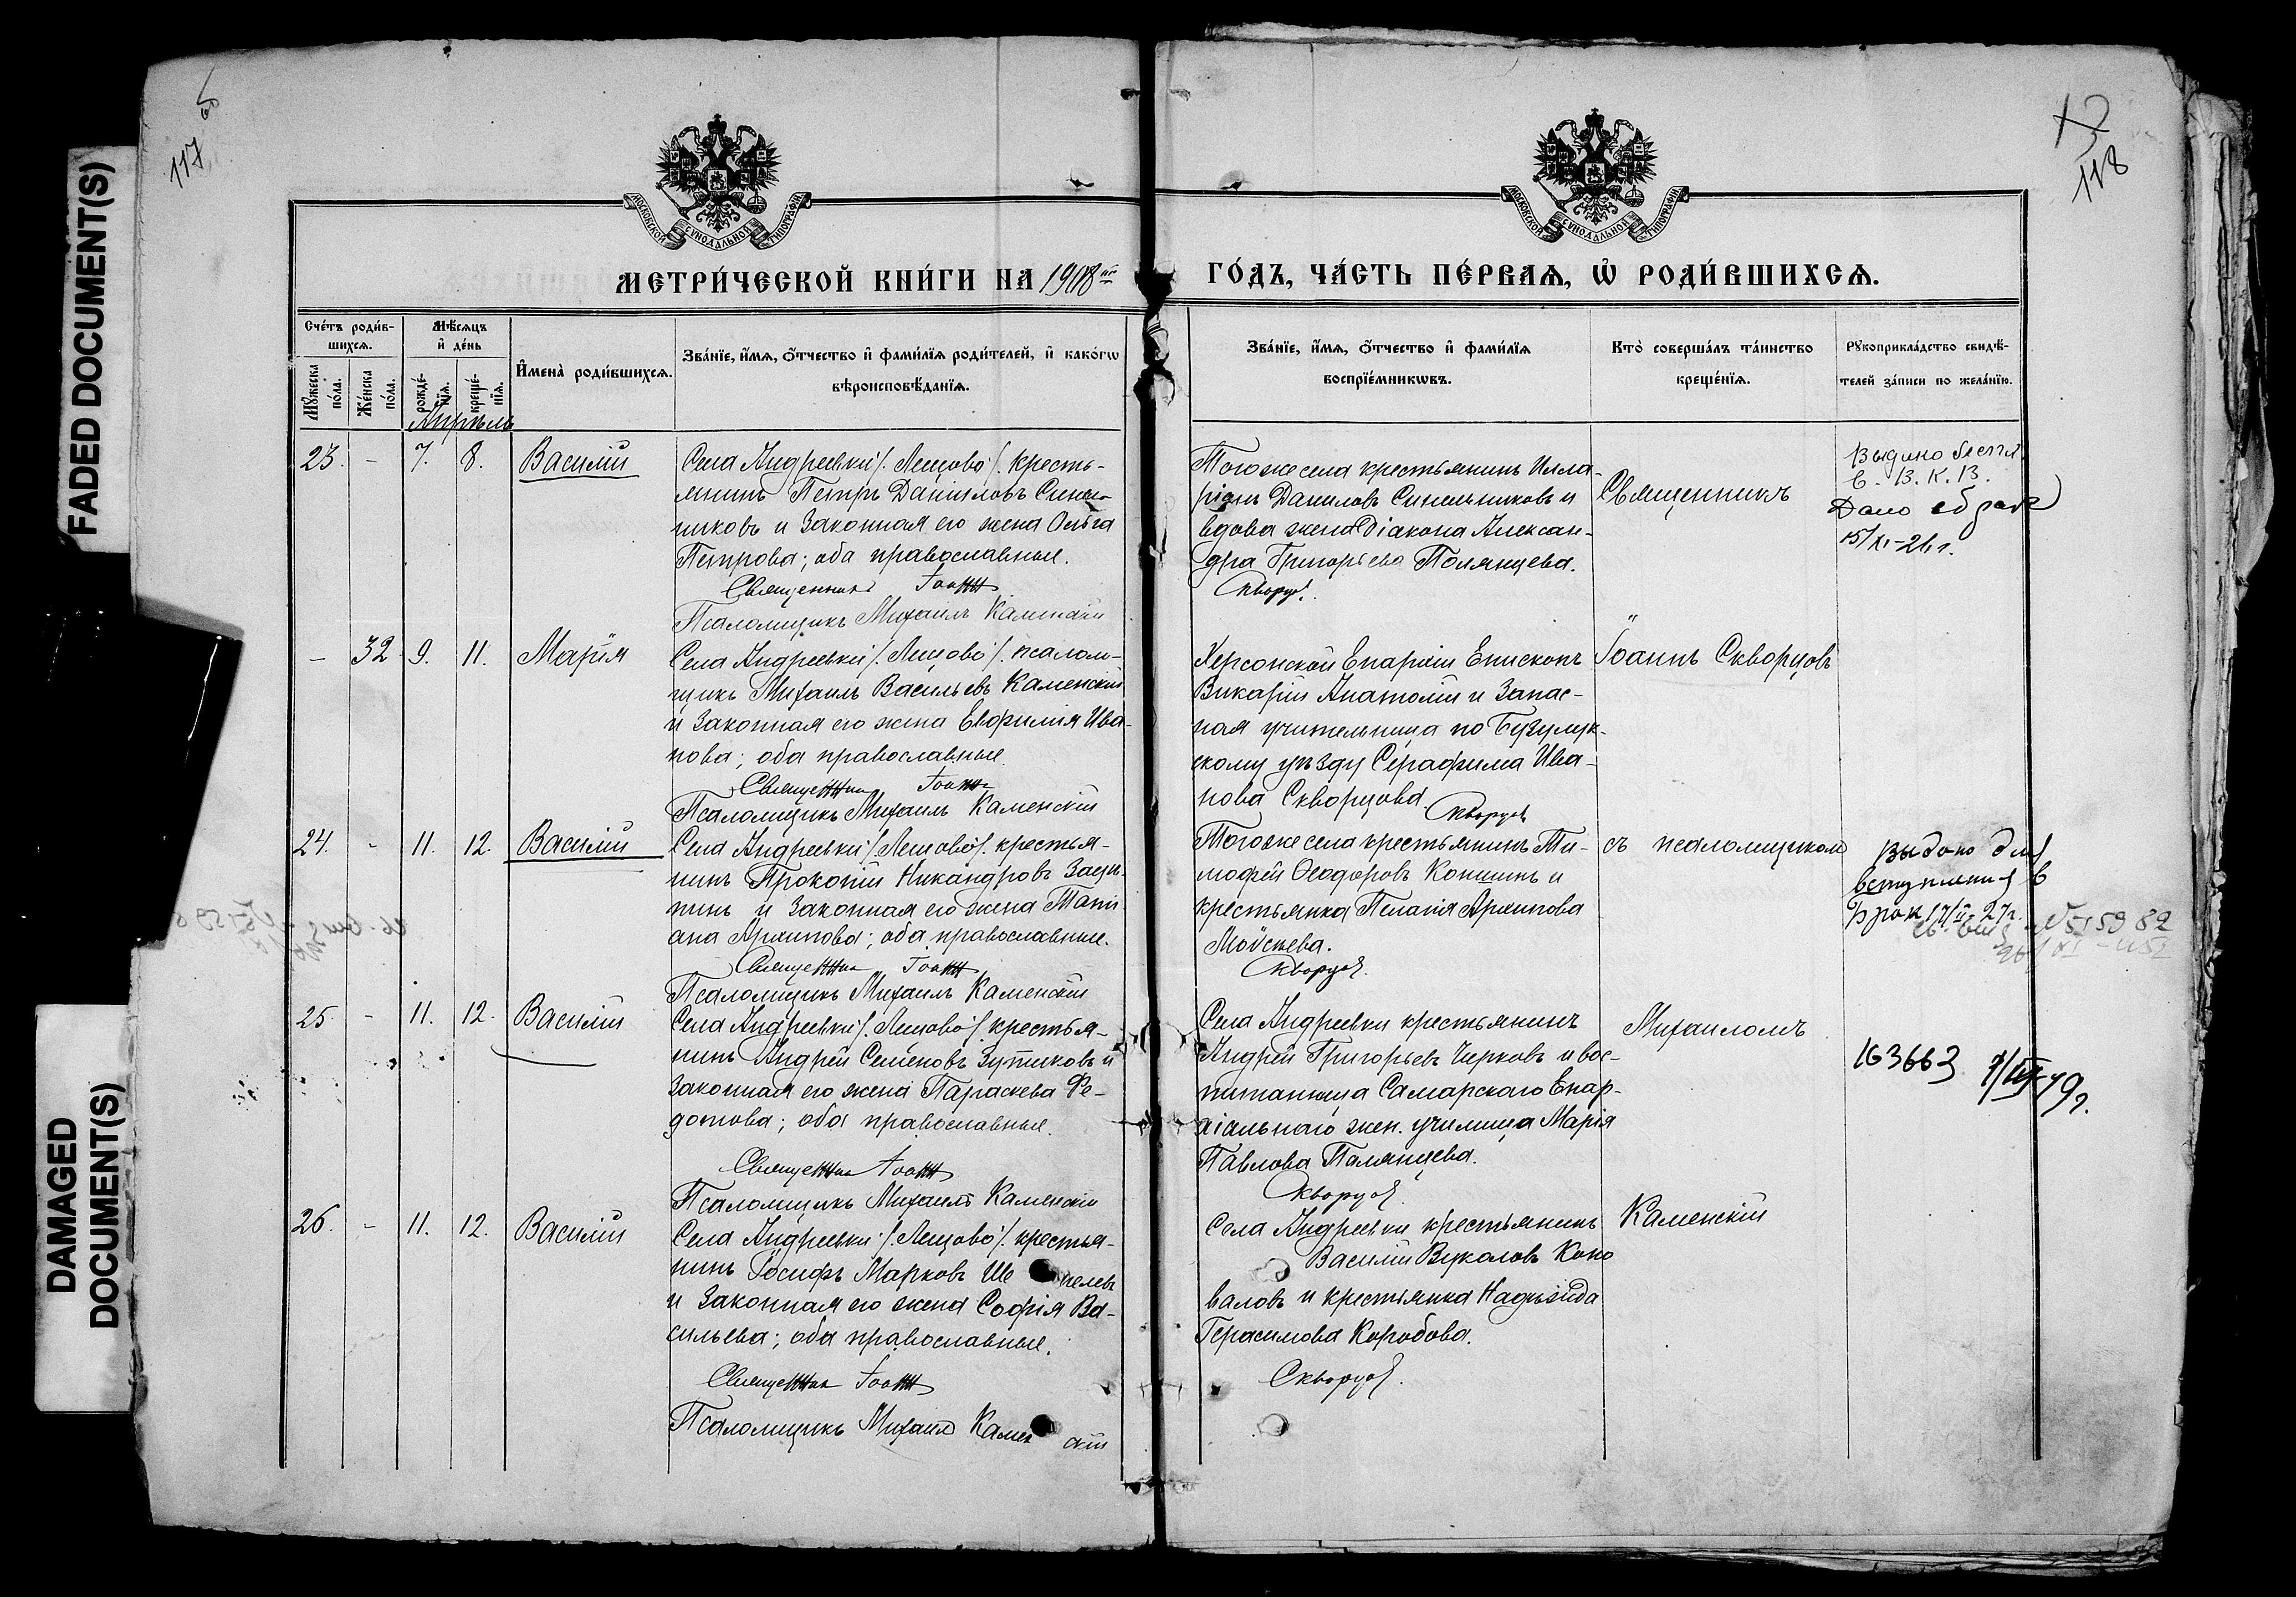 FADED DOCUMENT(S)
DAMAGED
DOCUMENT(S)
117
118
МОСКОВСКОЙ СУНОДАЛЬНОЙ ТИПОГРАФІИ
МОСКОВСКОЙ СУНОДАЛЬНОЙ ТИПОГРАФІИ
МЕТРИ́ЧЕСКОЙ КНИ́ГИ НА 1908 ый
ГО́ДЪ, ЧА́СТЬ ПЕ́РВАѦ, Ѡ҆ РОДИ́ВШИХСѦ.
Сче́тъ роди́в-
шихсѧ.
Мꙋ́жеска по́ла.
Же́нска по́ла.
Мѣ́сѧцъ
и҆ де́нь
рожде́-нїѧ.
креще́-нїѧ.
И҆мена̀ роди́вшихсѧ.
Зва́нїе, и҆́мѧ, ѻ҆́тчество и҆ фами́лїѧ роди́телей, и҆ како́гѡ
вѣроисповѣ́данїѧ.
Зва́нїе, и҆́мѧ, ѻ҆́тчество и҆ фами́лїѧ
воспрїе́мникѡвъ.
Кто̀ соверша́лъ та́инство
креще́нїѧ.
Рꙋкоприкла́дство свидѣ́-
телей за́писи по жела́нїю.
Апрѣль
23. - 7. 8. Василій
Села Андреевки /. Лещово /. кресть-
янинъ Петръ Даніиловъ Синель-
никовъ и законная его жена Ольга
Петрова; оба православные.
Священникъ Іоаннъ
Псаломщикъ Михаилъ Каменскій
Тогоже села крестьянинъ Илла-
ріонъ Данилов Синельниковъ и
вдова жена Діакона Алексан-
дра Григорьева Полянцева.
Скворцов.
Священникъ
Выдано
в. В. К. В.
Дано
15/XI-26 г.
- 32 9. 11. Марія
Села Андреевки /. Лещово /. псалом-
щикъ Михаилъ Васильевъ Каменскій
и законная его жена Евфимія Ива-
нова; оба православные.
Священникъ Іоаннъ
Псаломщикъ Михаилъ Каменскій
Херсонской Епархіи Епископъ
Викарій Анатолій и запас-
ная учительница по Бузулук-
скому уѣзду Серафима Ива-
нова Скворцова.
Скворцовъ
Іоаннъ Скворцовъ
24. - 11. 12. Василій
Села Андреевки /. Лещово /. крестья-
нинъ Прокопій Никандровъ
и законная его жена Тати-
ана Архипова; оба православные.
Священникъ Іоаннъ
Псаломщикъ Михаилъ Каменскій
Тогоже села крестьянинъ Ти-
мофей Ѳеодоровъ Коншинъ и
крестьянка Пелагія Архипова
Мойсеева.
Скворцов.
съ псаломщикомъ
Выдано для
вступления в
брак 17/II-27 г.
25. - 11. 12. Василій
Села Андреевки /. Лещово /. крестья-
нинъ Андрей Семеновъ Зутиковъ и
законная его жена Параскева Ѳе-
дотова; оба православные.
Священникъ Іоаннъ
Псаломщикъ Михаилъ Каменскій
Села Андреевки крестьянинъ
Андрей Григорьевъ Чирковъ и вос-
питанница Самарскаго Епар-
хіальнаго жен. училища Марія
Павлова Полянцева.
Скворцов.
Михаиломъ
163663
26. - 11. 12. Василій
Села Андреевки /. Лещово /. крестья-
нинъ Іосифъ Марковъ Ше пелевъ
и законная его жена Софія Ва-
сильева; оба православные.
Священникъ Іоаннъ
Псаломщикъ Михаилъ Камен скій
Села Андреевки крестьянинъ
Василій Вуколовъ Коно
валовъ и крестьянка Надежда
Герасимова Коробова.
Скворцов.
Каменскій